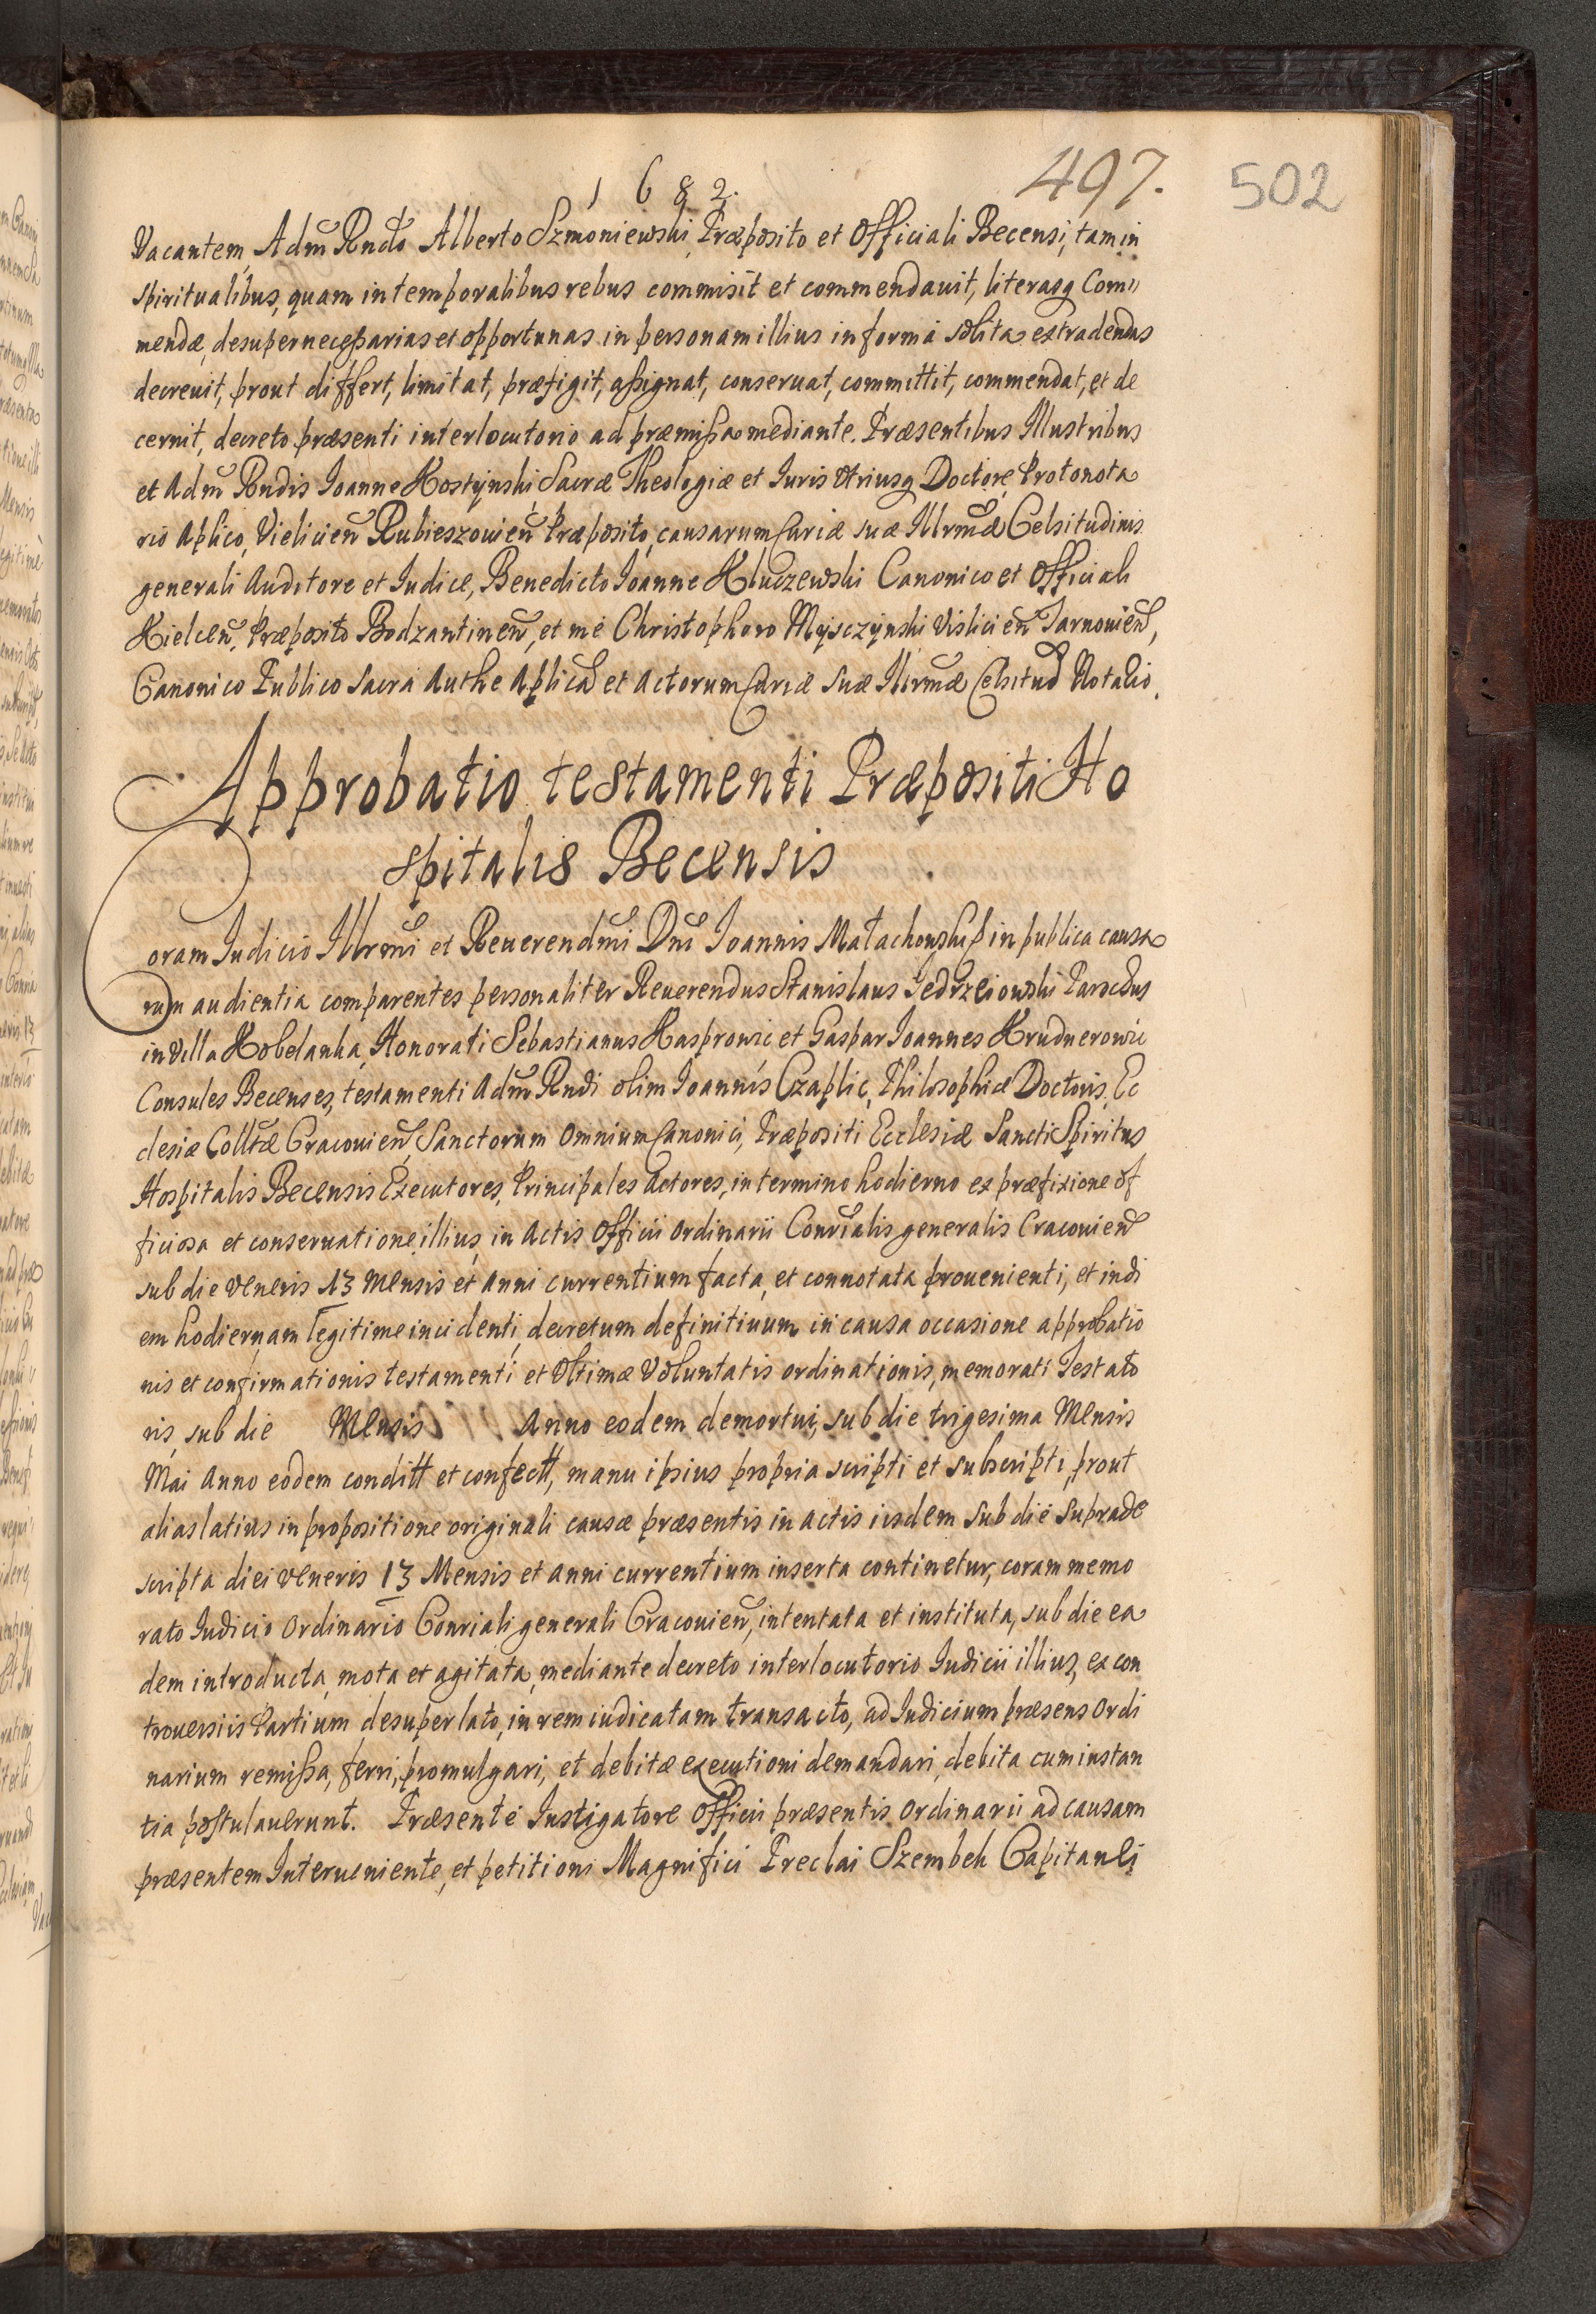 1682.
497.
502
Vacantem, Adm̃ Rndo Alberto Szmoniewski, Præposito et Officiali Becensi, tam in
spiritualibus, quam in temporalibus rebus commisit et commendauit, literasq Com
mendæ, desuper necessarias et opportunas in personam illius in forma solita extradendas
decreuit, prout differt, limitat, præfigit, assignat, conseruat, committit, commendat, et de
cernit, decreto præsenti interlocutorio ad præmissa mediante. Præsentibus Illustribus
et Adm̃ Rndis Ioanne Kostynski Sacræ Theologiæ et Iuris Vtriusq Doctore, Protonota
rio Aplico, Vielicien̄ Rubieszouien̄ Præposito, causarum Curiæ suæ Illrmæ Celsitudinis
generali Auditore et Iudice, Benedicto Ioanne Kluczewski Canonico et Officiali
Kielcen̄, Præposito Bodzantinen̄, et me Christophoro Myszczynski Vislicien̄ Tarnouien̄,
Canonico Publico Sacra Authe Aplica et Actorum Curiæ Suæ Illrmæ Celsitud Notario.
Approbatio testamenti Præpositi Ho
spitalis Becensis
Coram Iudicio Illrmi et Reuerendmi Dni Ioannis Małachowski Ep in publica causa
rum audientia comparentes personaliter Reuerendus Stanislaus Jedrzeiowski Parochus
in Villa Kobelanka, Honorati Sebastianus Kasprowic et Gaspar Ioannes Krudnerowic
Consules Becenses, testamenti Adm̃ Rndi olim Ioannis Czaplic, Philosophiæ Doctoris, Ec
clesiæ Colltæ Cracouien̄, Sanctorum Omnium Canonici, Præpositi Ecclesiæ Sancti Spiritus
Hospitalis Becensis Executores, Principales Actores, in termino hodierno ex præfixione of
ficiosa et conseruatione illius, in Actis Officii Ordinarii Conrialis generalis Cracouien̄
sub die Veneris 13 Mensis et Anni currentium facta, et connotata prouenienti, et in di
em hodiernam legitime incidenti, decretum definitiuum in causa occasione approbatio
nis et confirmationis testamenti et Vltimæ Voluntatis ordinationis, memorati Testato
ris, sub die Mensis Anno eodem demortui, sub die trigesima Mensis
Mai Anno eodem conditt et confectt, manu ipsius propria scripti et subscripti, prout
alias latius in propositione originali causæ præsentis in actis iisdem sub die suprade
scripta diei Veneris 13 Mensis et anni currentium inserta continetur, coram memo
rato Iudicio Ordinario Conriali generali Cracouien̄, intentata et instituta, sub die ea
dem introducta, mota et agitata, mediante decreto interlocutorio Iudicii illius, ex con
trouersiis Partium desuper lato, in rem iudicatam transacto, ad Iudicium præsens Ordi
narium remissa, ferri, promulgari, et debitæ executioni demandari, debita cum instan
tia postulauerunt. Præsente Instigatore Officii præsentis Ordinarii ad causam
præsentem Interueniente, et petitioni Magnifici Preclai Szembek Capitanei